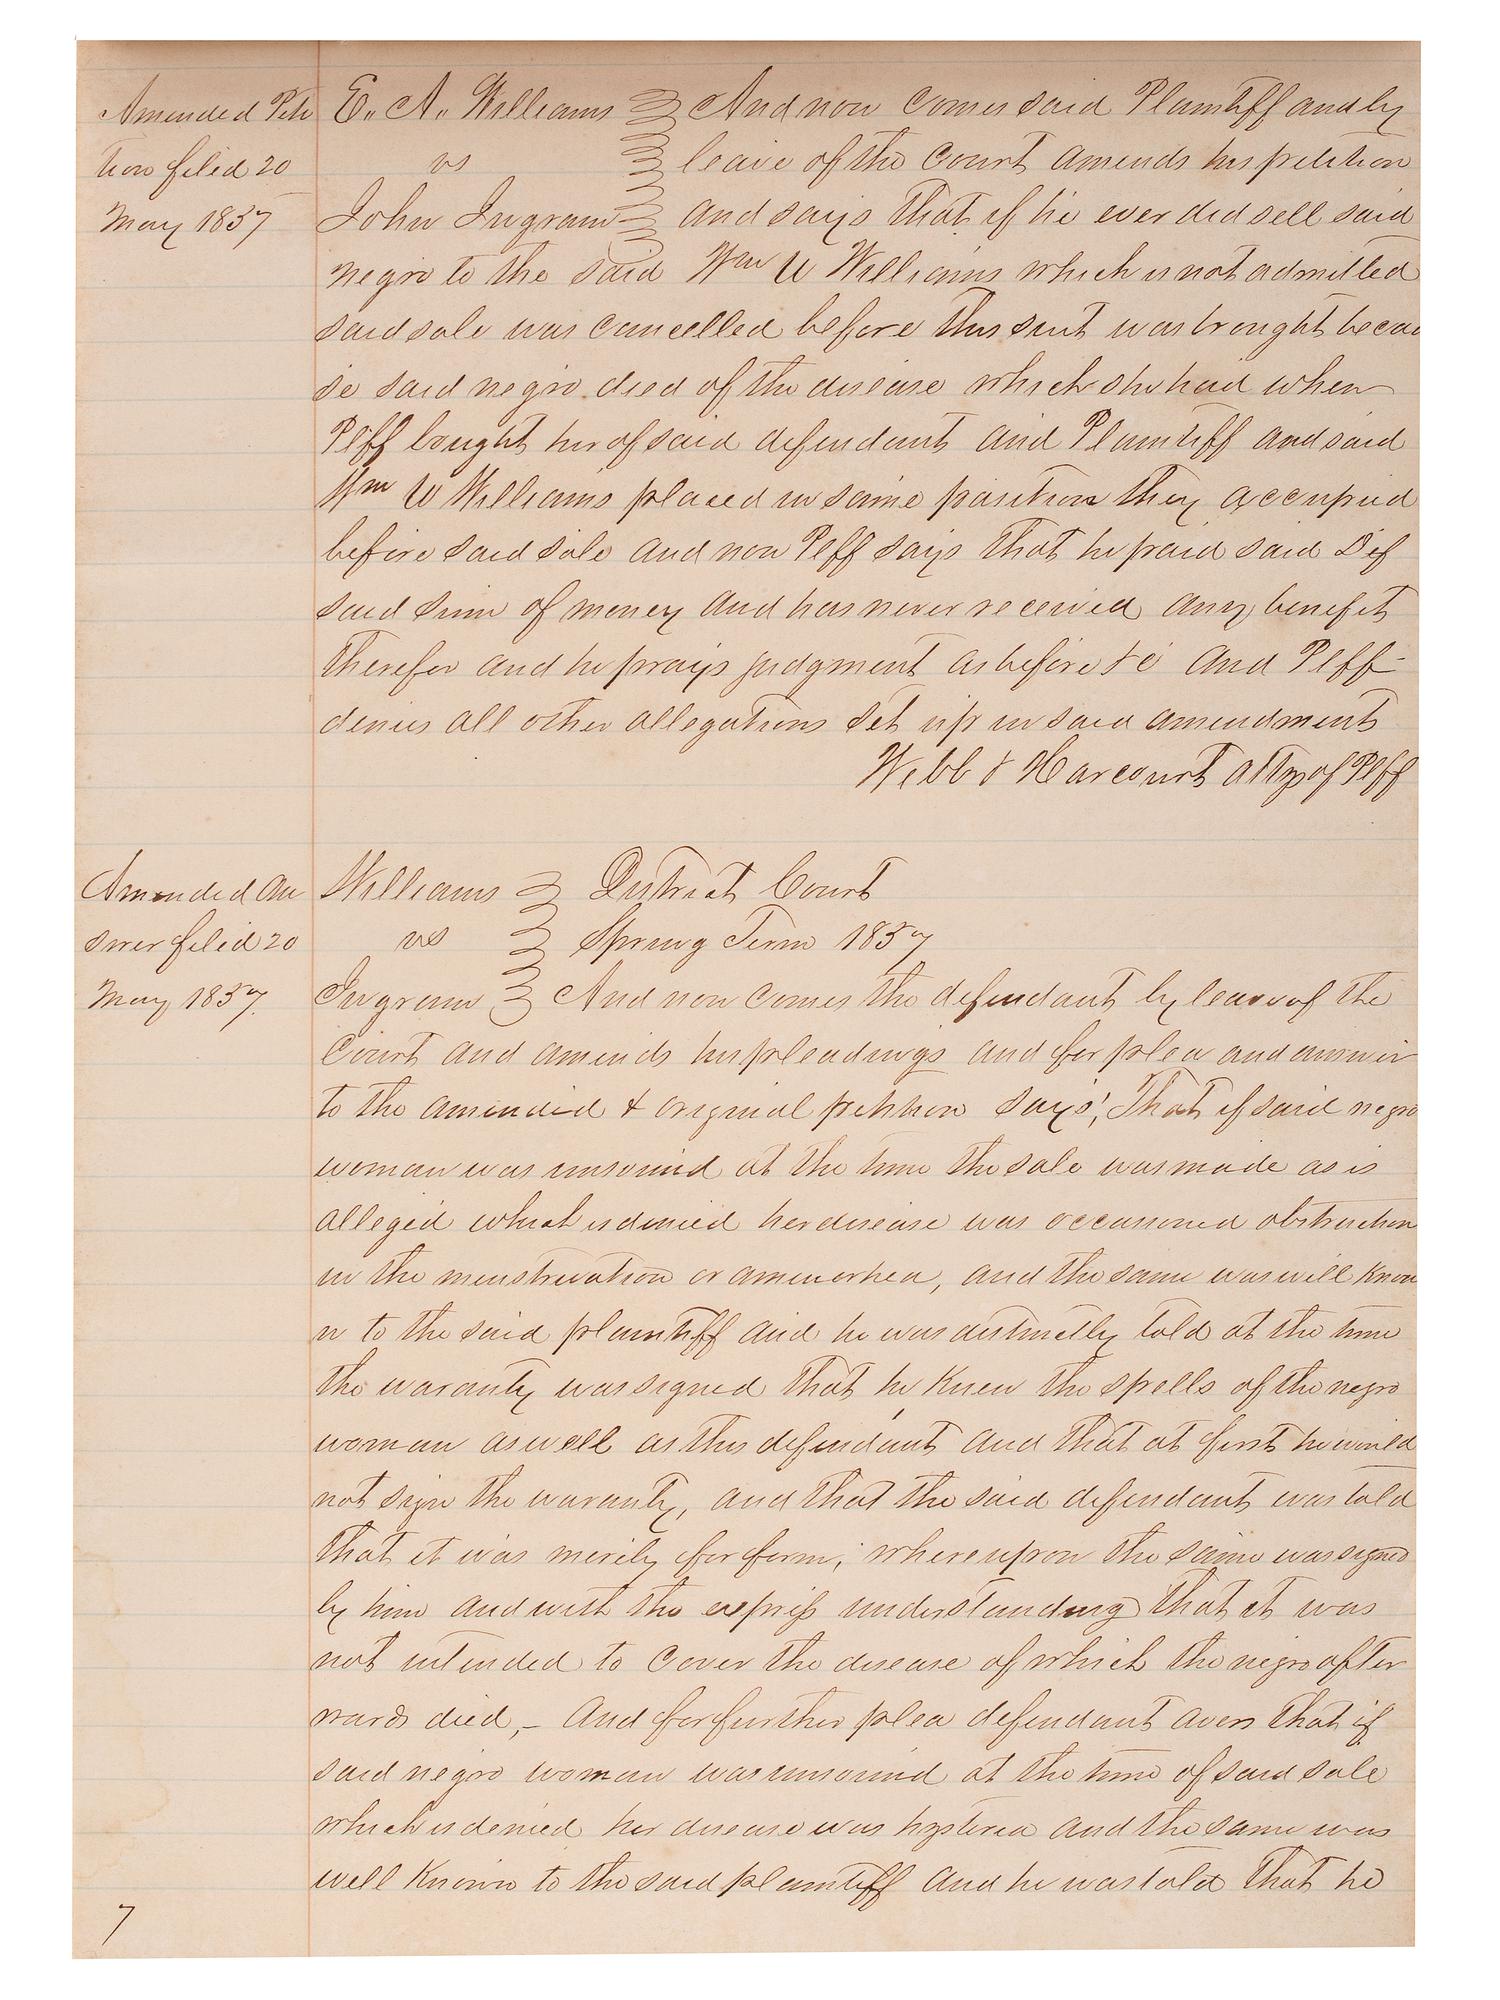 Amended Peti
tion filed 20
May 1857
E. A. Williams And now comes said Plaintiff and by
vs leave of the Court amends his petition
John Ingram and says that if he ever did sell said
negro to the said Wm W Williams which is not admitted
said sale was cancelled before this suit was brought becau
se said negro died of the disease which she had when
Plff bought her of said defendant and Plaintiff and said
Wm W Williams placed in same position they occupied
before said sale and now Plff says that he paid said Def
said sum of money and has never received any benefit
therefor and he prays judgment as before &c And Plff
denies all other allegations set up in said amendment
Webb & Harcourt attys of Plff
Amended An
swer filed 20
May 1857.
Williams District Court
vs Spring Term 1857
Ingram And now comes the defendant by leave of the
Court and amends his pleadings and for plea and answer
to the amended & original petition says; That if said negro
woman was unsound at the time the sale was made as is
alleged which is denied her disease was occasioned obstruction
in the menstruation or amenorhea, and the same was well know
n to the said plaintiff and he was distinctly told at the time
the waranty was signed that he knew the spells of the negro
woman as well as this defendant and that at first he would
not sign the waranty, and that the said defendant was told
that it was merely for form; whereupon the same was signed
by him and with the express understanding that it was
not intended to cover the disease of which the negro after
wards died,- And for further plea defendant avers that if
said negro woman was unsound at the time of said sale
which is denied her disease was hysteria and the same was
well known to the said plaintiff and he was told that he
7